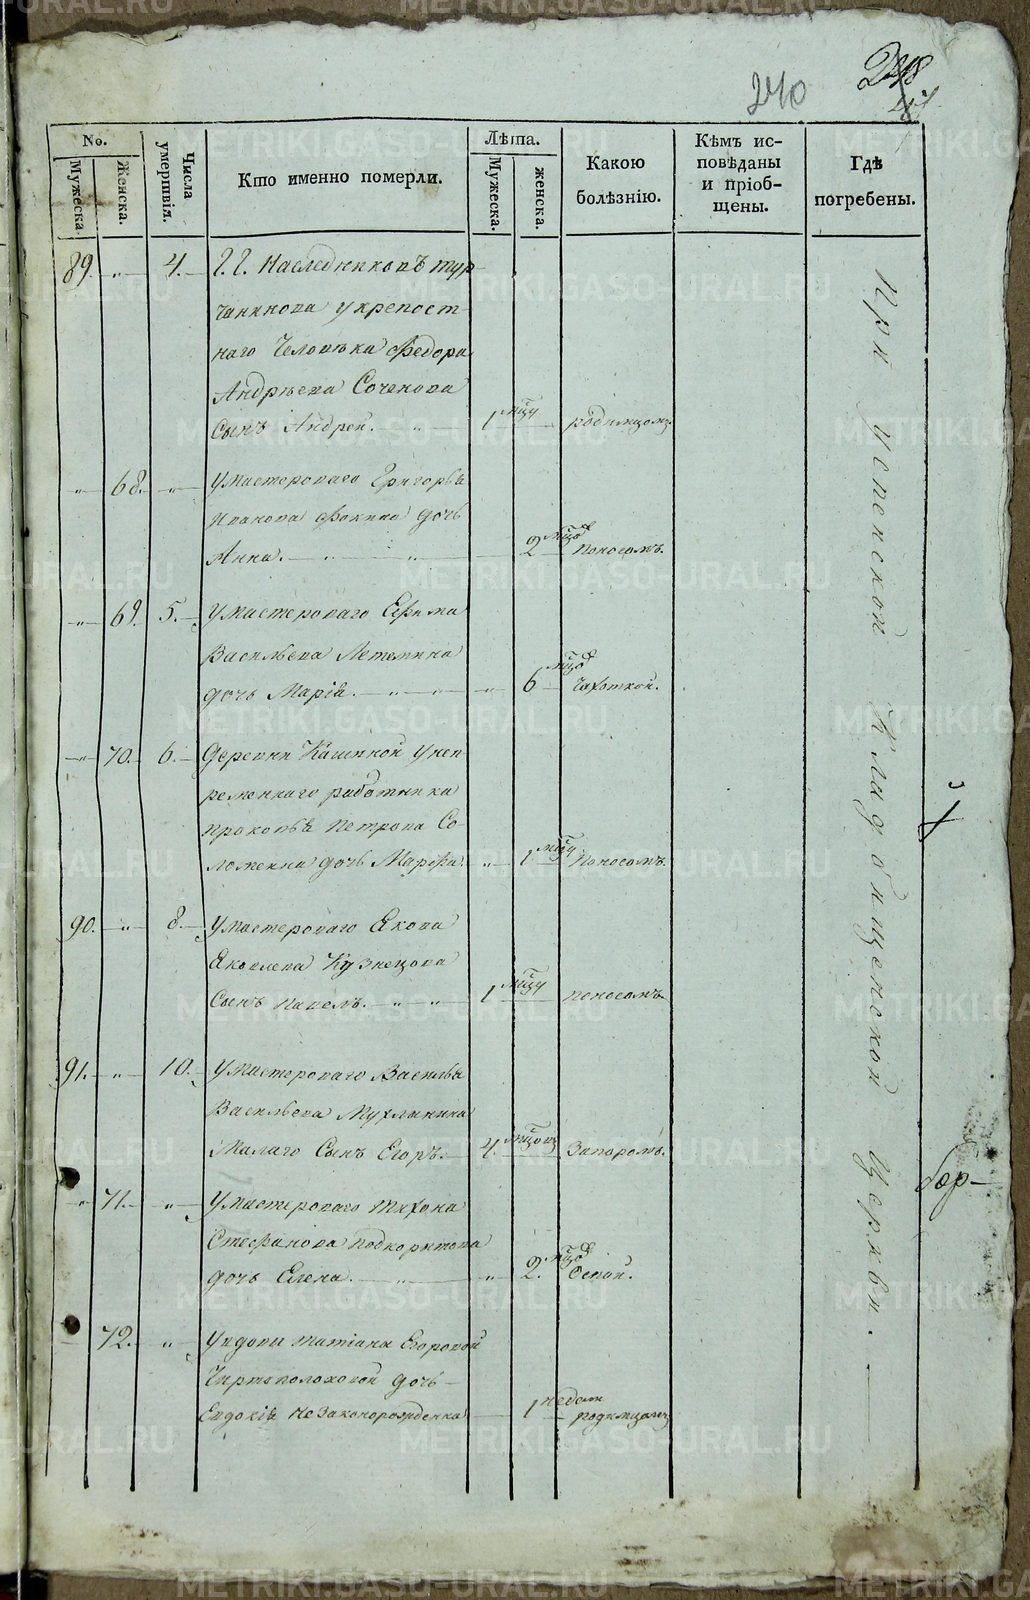 240
No.
Мужеска.
Женска.
Числа умертвія.
Кто именно померли.
Лѣта.
Мужеска.
женска.
Какою болѣзнію.
Кѣмъ исповѣданы и пріобщены.
Гдѣ погребены.
89. " 4. Г. Г. Наследниковъ Тур-
чанинова у крепост-
наго Человѣка Федора
Андрѣева Соченова
Сынъ Андрей. 1 мцу родимцомъ.
" 68. " У мастероваго Григорья
Иванова Фокина дочь
Анна. 2 мцов поносомъ.
" 69. 5. У мастероваго Ефима
Васильева Летемина
дочь Марія. " 6 мцов Чахоткой.
" 70. 6. Деревни Кашиной у неп-
ременнаго работника
Прокопья Петрова Со-
ломеина дочь Марфа. " 1 мцу Поносомъ.
90. " 8. У мастероваго Якова
Яковлева Кузнецова
Сынъ Павелъ. 1 мцу поносомъ.
91. " 10. У мастероваго Василья
Васильева Мухлынина
Малаго Сынъ Егоръ. 4. мцовъ Запоромъ.
" 71. " У мастероваго Тихона
Стефанова Подкорытова
дочь Елена. " 2. мцов Оспой.
72. " У вдовы Татіаны Егоровой
Чертополоховой дочь
Евдокія незаконорожденна 1 недели родимцомъ
При успенской Кладбищенской Церкви.
METRIKI.GASO-URAL.RU